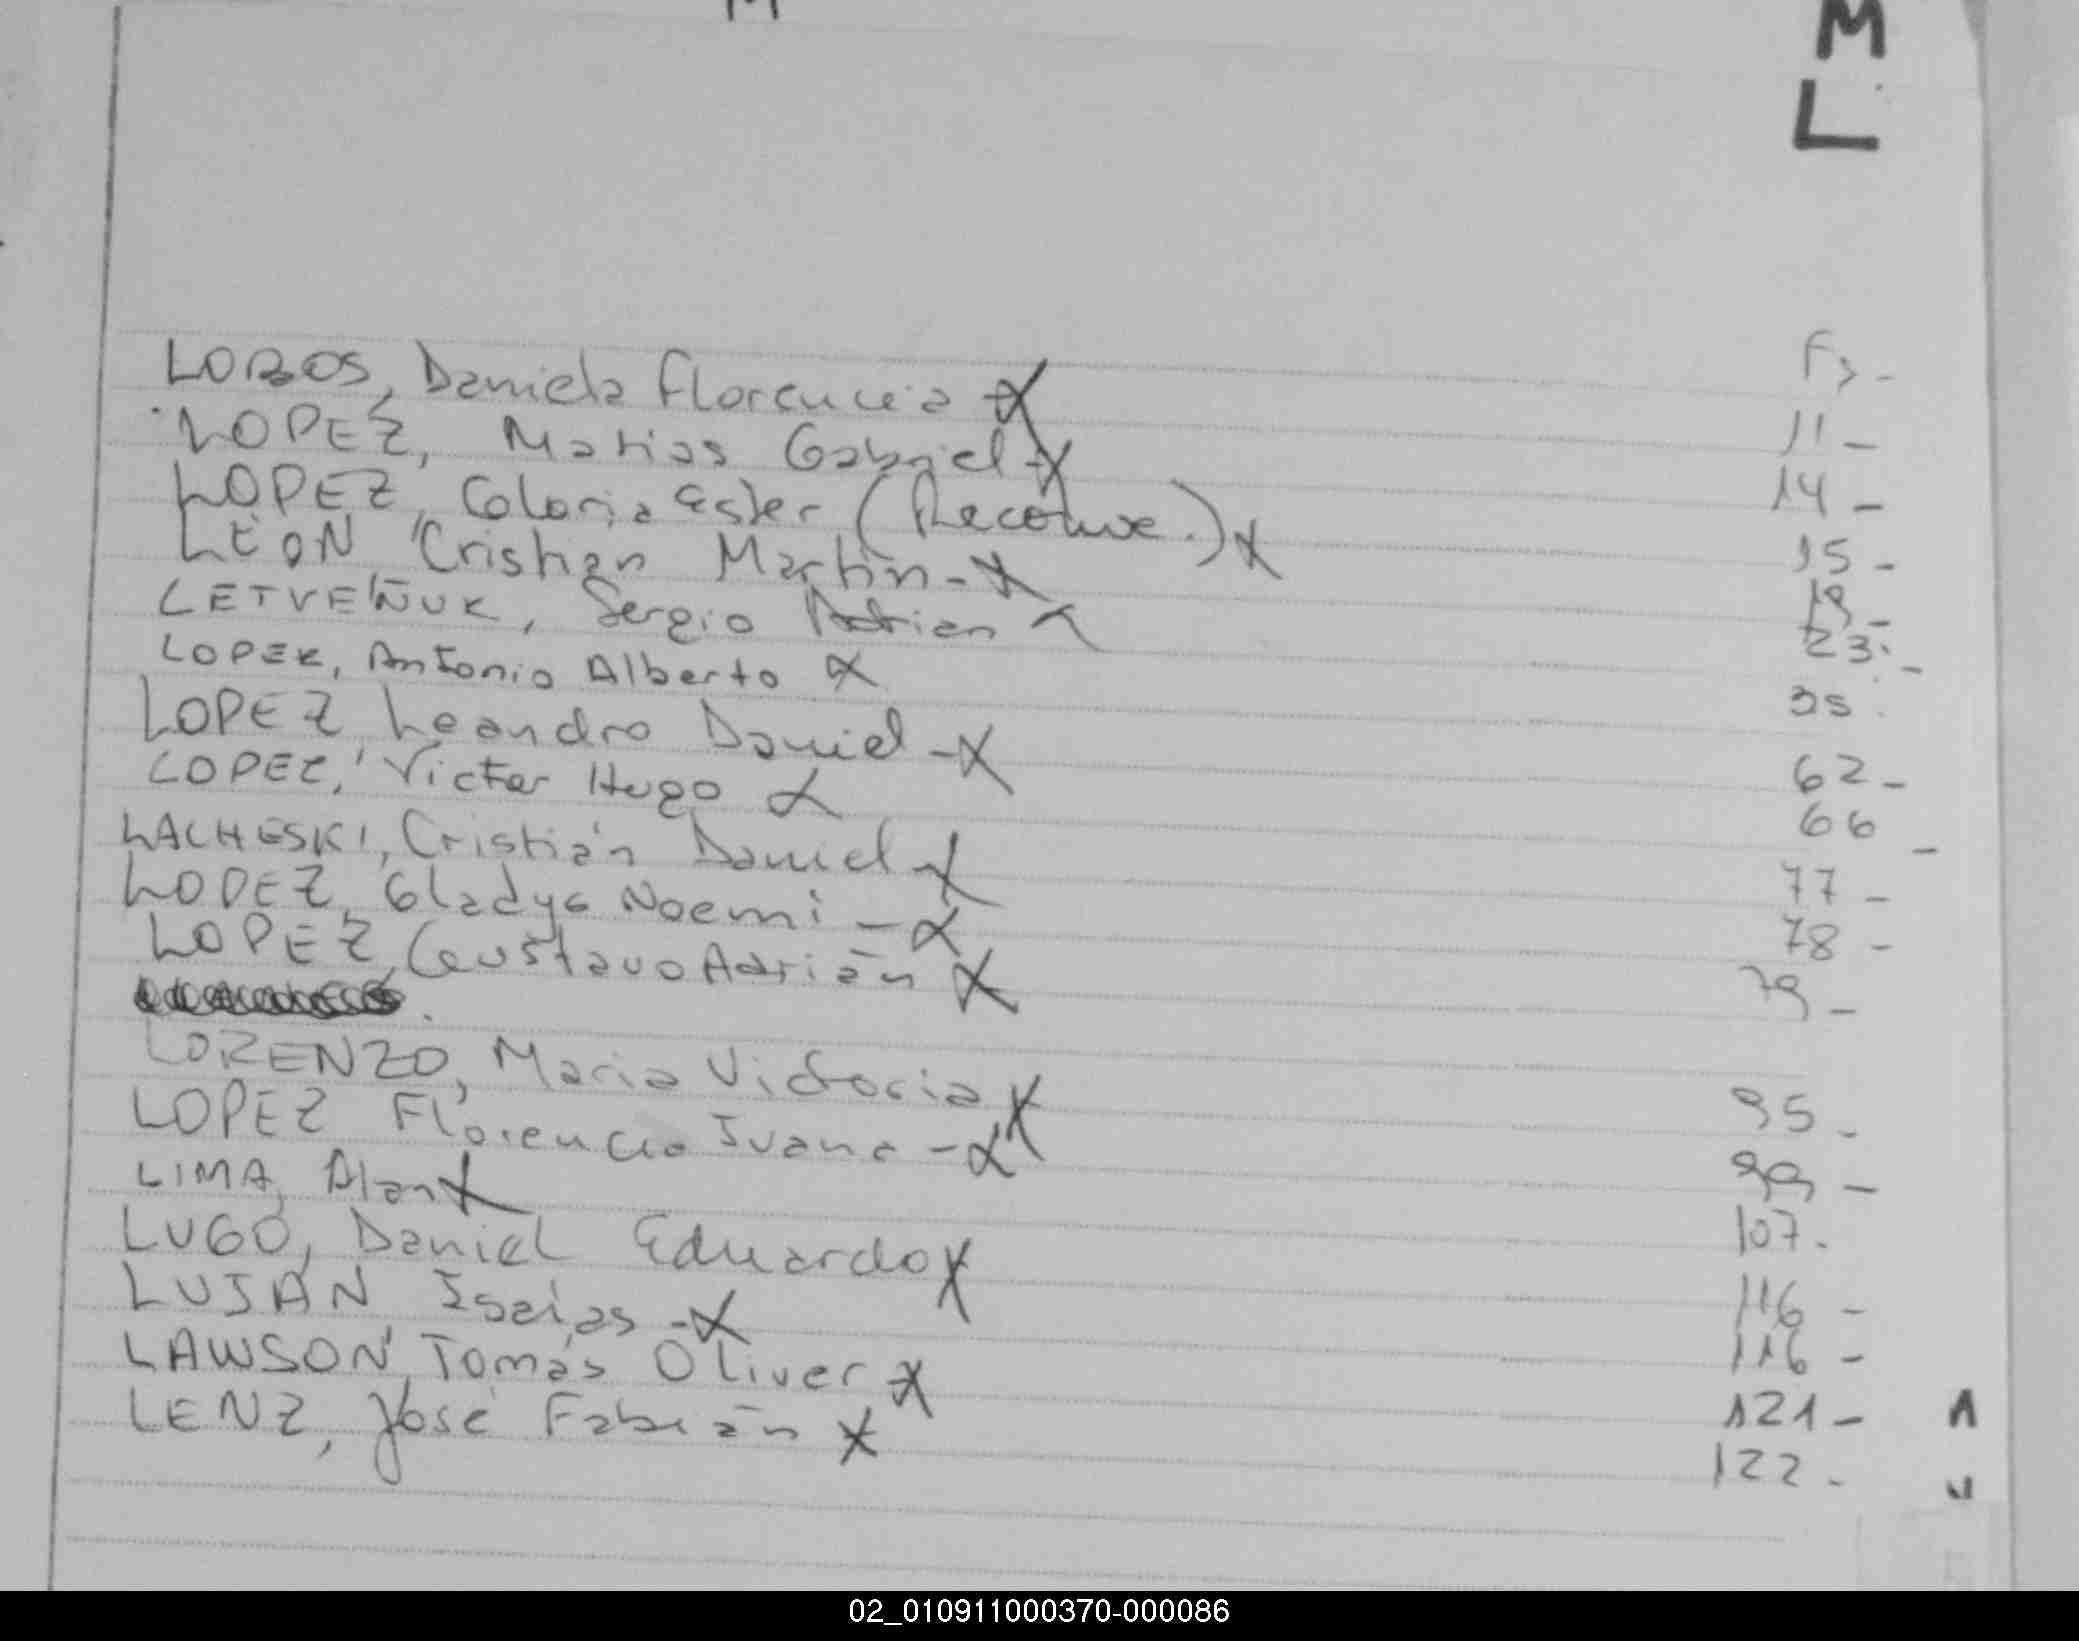 M
M
L
LOBOS, Daniela Florencia F>-
LOPEZ, Matias Gabriel 11-
LOPEZ, Gloria Ester 14-
LEON, Cristian Martin- 15-
LETVEÑUK, Sergio Adrian 19-
LOPEZ, Antonio Alberto 23.-
LOPEZ, Leandro Daniel - 35.
LOPEZ, Victor Hugo 62-
LACHESKI, Cristián Daniel 66-
LOPEZ, Gladys Noemi - 77-
LOPEZ, Gustavo Adrián 78-
79-
LORENZO, Maria Victoria
LOPEZ, Florencia Ivana - 95-
LIMA, Alan 99-
LUGO, Daniel Eduardo 107.
LUJAN Isaias - 116-
LAWSON, Tomás Oliver 116-
LENZ, José Fabián 121-
122.
02_010911000370-000086